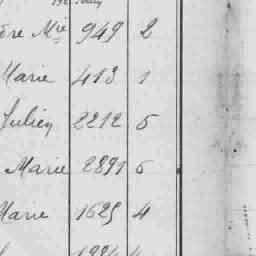 Mie 949 2
Marie 413 1
Julien 2212 5
Marie 2891 6
Marie 1625 4